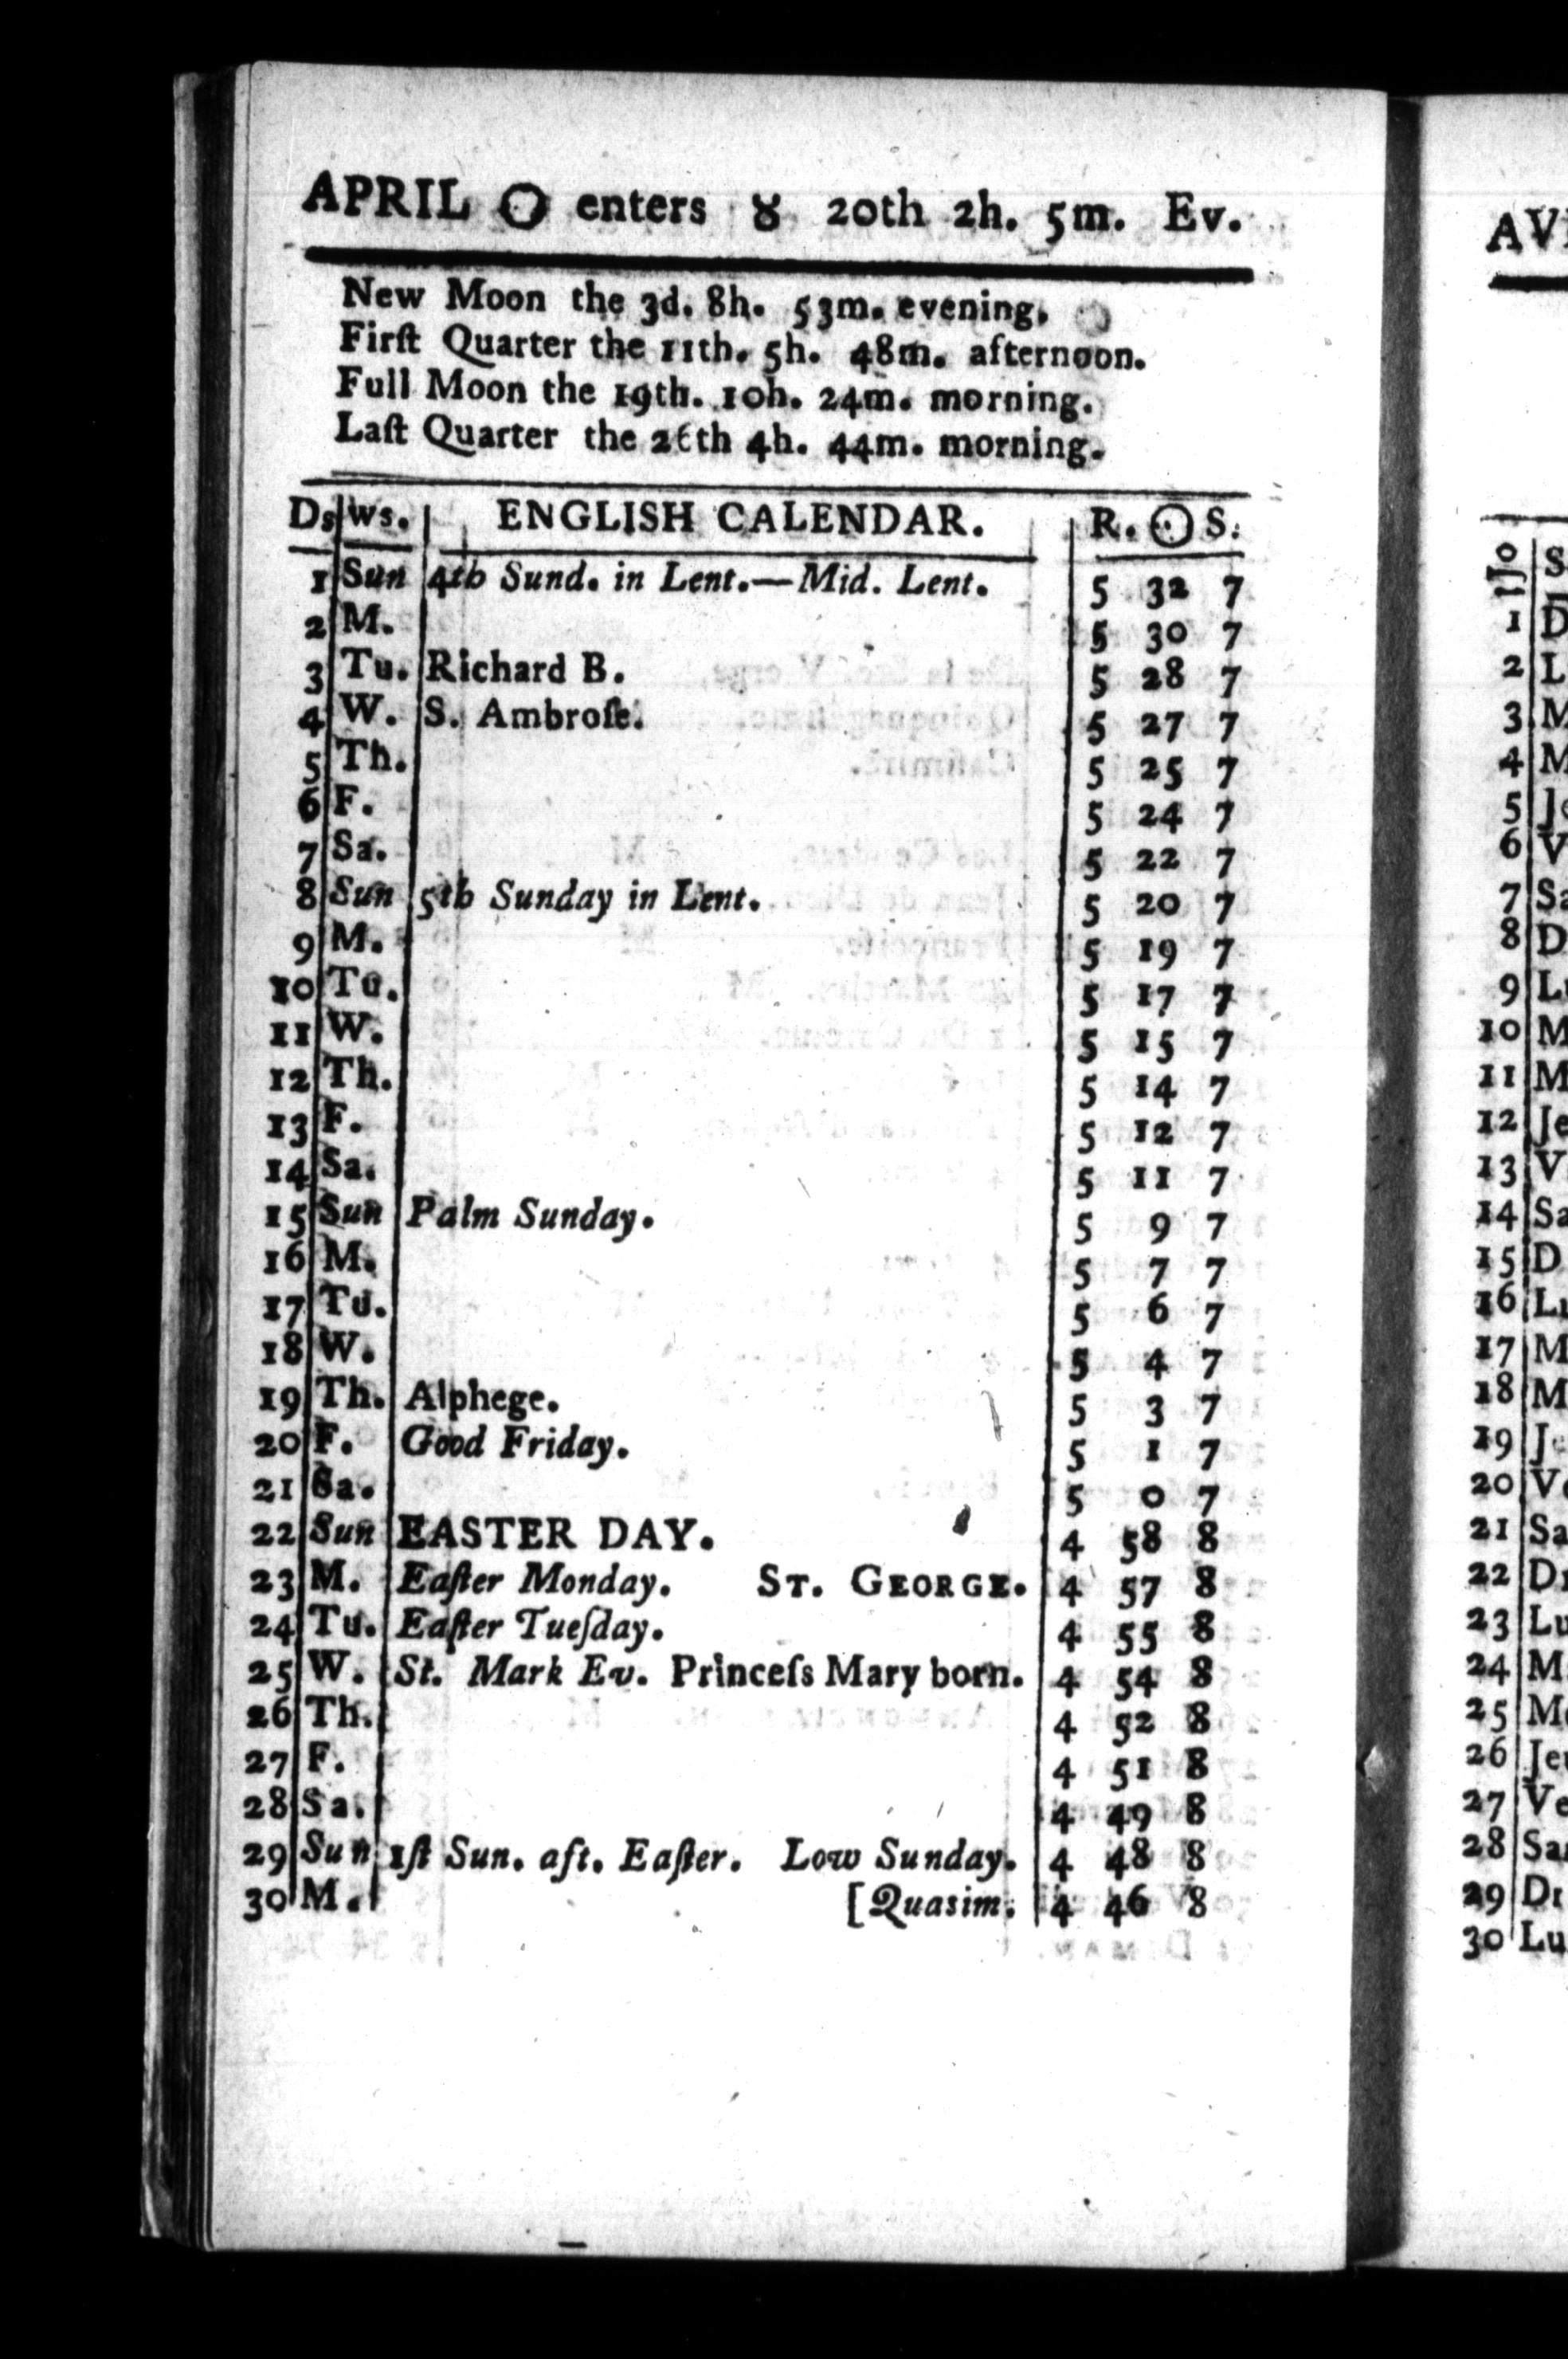 APRIL ☉ enters ♉ 20th 2h. 5m. Ev.
New Moon the 3d. 8h. 53m. evening.
Firſt Quarter the 11th. 5h. 48m. afternoon.
Full Moon the 19th. 10h. 24m. morning.
Laſt Quarter the 26th 4h. 44m. morning.
Ds ws. ENGLISH CALENDAR. R. ☉ S.
1 Sun 4th Sund. in Lent.—Mid. Lent. 5 32 7
2 M. 5 30 7
3 Tu. Richard B. 5 28 7
4 W. S. Ambroſe. 5 27 7
5 Th. 5 25 7
6 F. 5 24 7
7 Sa. 5 22 7
8 Sun 5th Sunday in Lent. 5 20 7
9 M. 5 19 7
10 Tu. 5 17 7
11 W. 5 15 7
12 Th. 5 14 7
13 F. 5 12 7
14 Sa. 5 11 7
15 Sun Palm Sunday. 5 9 7
16 M. 5 7 7
17 Tu. 5 6 7
18 W. 5 4 7
19 Th. Alphege. 5 3 7
20 F. Good Friday. 5 1 7
21 Sa. 5 0 7
22 Sun EASTER DAY. 4 58 8
23 M. Eaſter Monday. ST. GEORGE. 4 57 8
24 Tu. Eaſter Tueſday. 4 55 8
25 W. St. Mark Ev. Princeſs Mary born. 4 54 8
26 Th. 4 52 8
27 F. 4 51 8
28 Sa. 4 49 8
29 Sun 1ſt Sun. aft. Eaſter. Low Sunday. 4 48 8
30 M. [Quasim. 4 46 8
AV
Jo S
1 D
2 L
3 M
4 M
5 Je
6 V
7 Sa
8 D
9 Lu
10 M
11 M
12 Je
13 V
14 Sa
15 D
16 Lu
17 M
18 M
19 Je
20 Ve
21 Sa
22 Di
23 Lu
24 M
25 Me
26 Jeu
27 Ve
28 Sa
29 Di
30 Lu